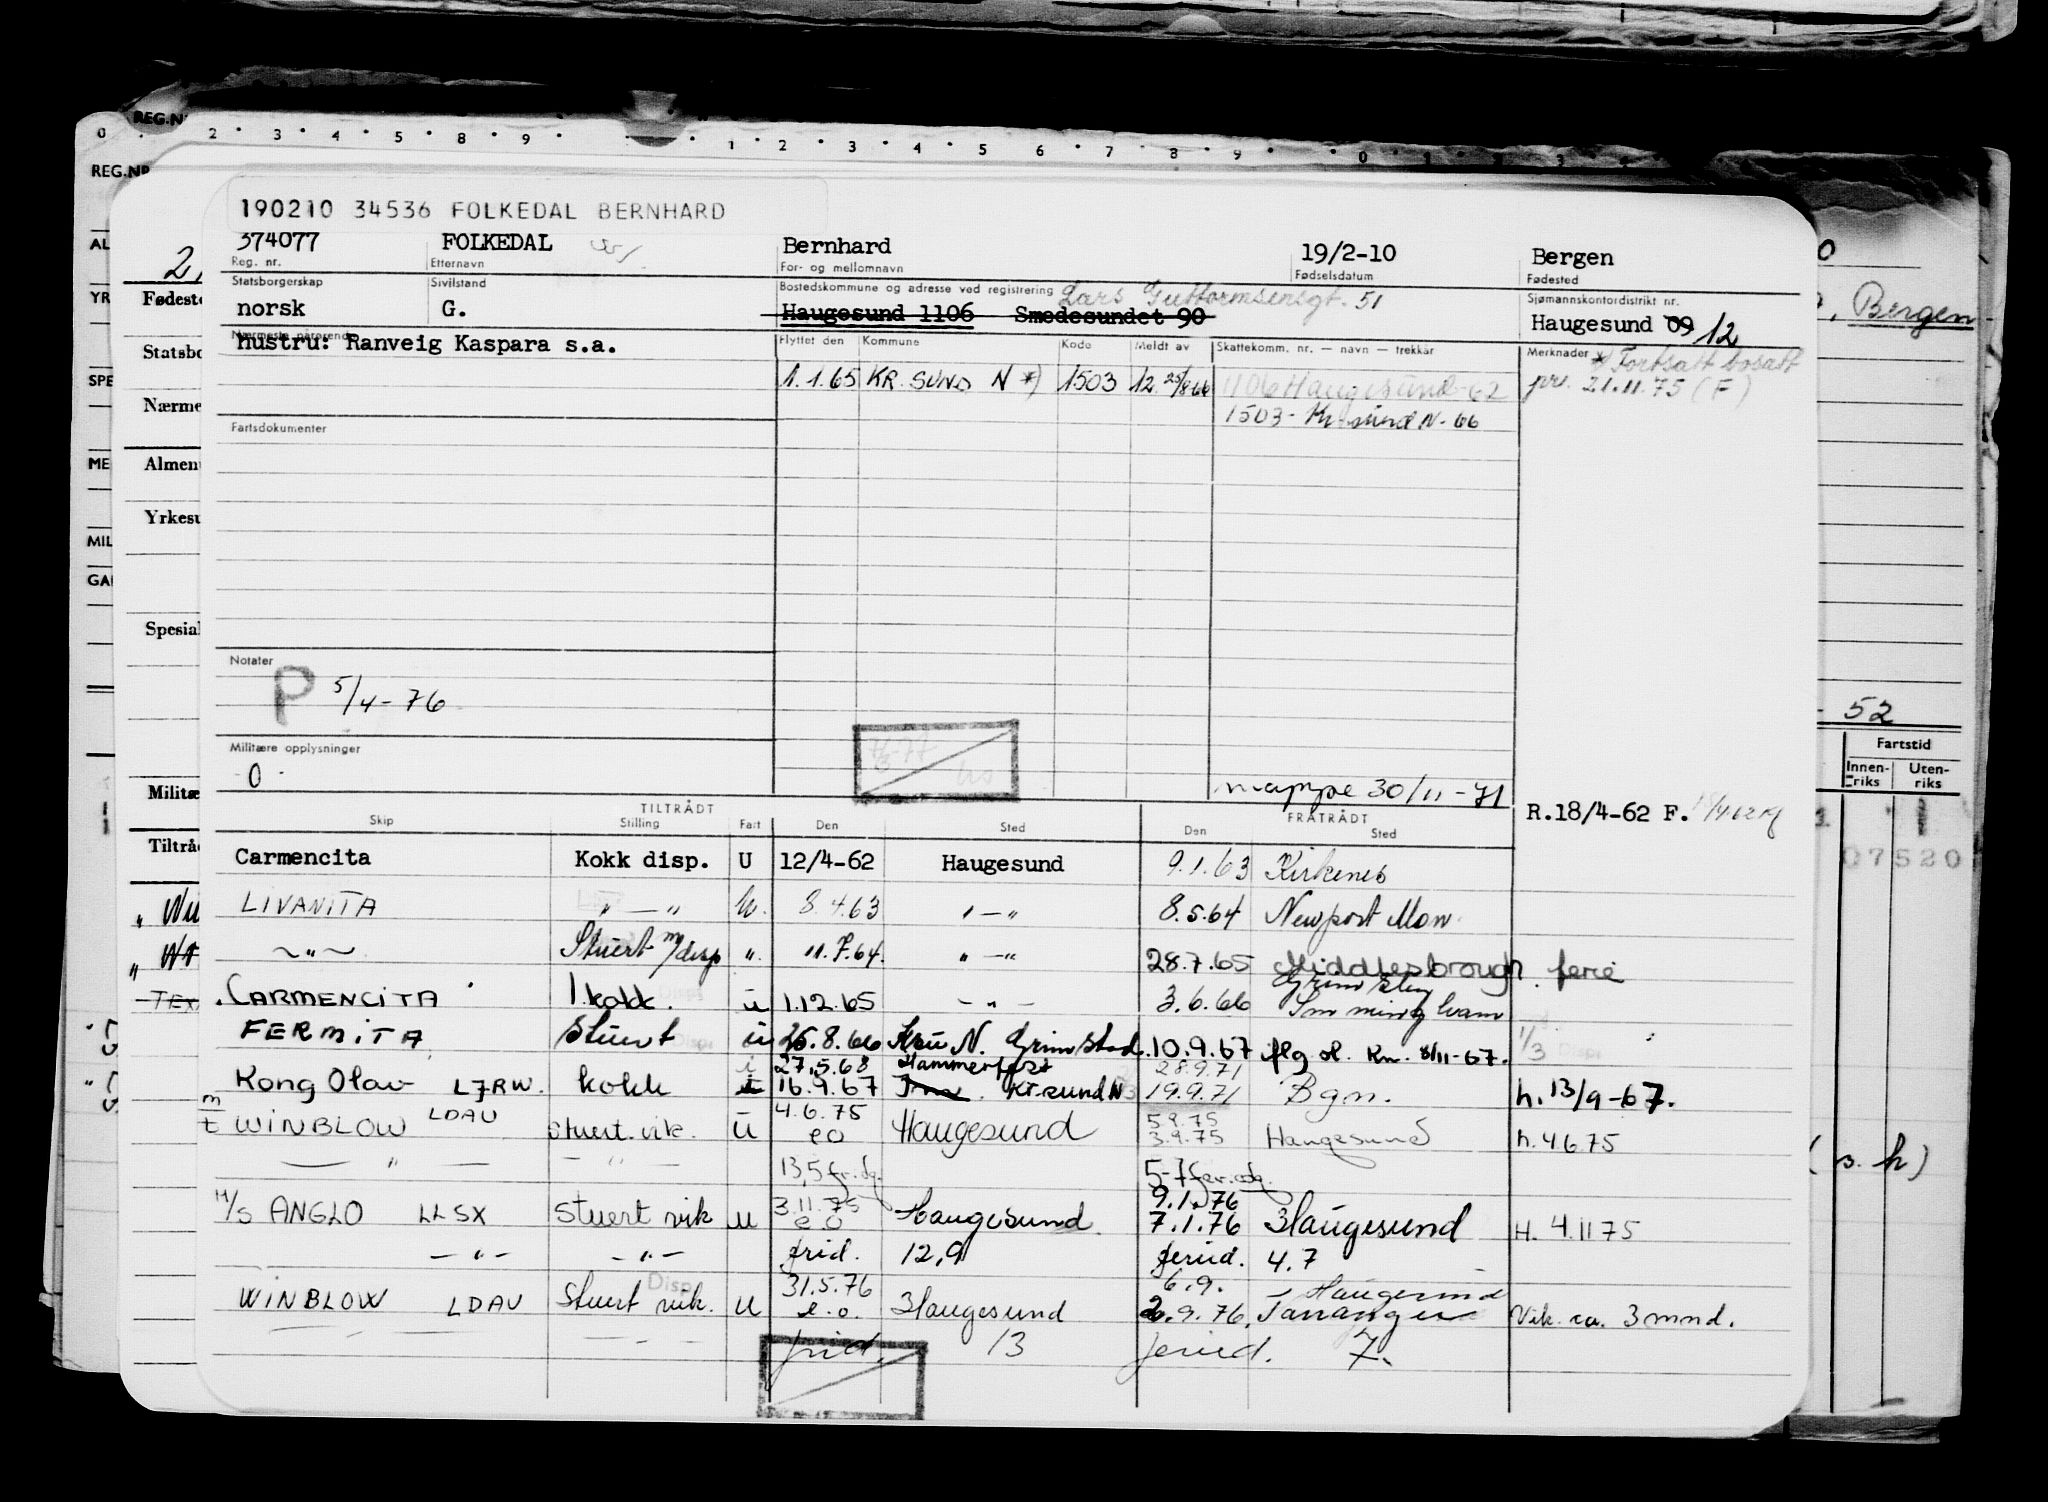 REG.N
0 2 3 4 5 8 9 1 2 3 4 5 6 7 8 9 0 1 2 3
REG.NR
190210 34536 FOLKEDAL BERNHARD
374077 FOLKEDAL Bernhard 19/2-10 Bergen
Reg. nr. Etternavn For- og mellomnavn Fødselsdatum Fødested
Statsborgerskap Sivilstand Bostedskommune og adresse ved registrering Lars Guttormsensgt. 51 Sjømannskontordistrikt nr.
norsk G. Haugesund 1106 Smedesundet 90 Haugesund 09 12
Nærmeste pårørende
hustru: Ranveig Kaspara s.a.
Flyttet den Kommune Kode Meldt av Skattekomm. nr. — navn — trekkår Merknader *) Fortsatt bosatt
1.1.65 KR. SUND N *) 1503 12 25/8 66 1106 Haugesund-62 pr. 21.11.75 (F)
1503- Kr.sund N- 66
Fartsdokumenter
Notater
P 5/4-76
Militære opplysninger
0
mappe 30/11-71
TILTRÅDT FRATRÅDT R.18/4-62 F.
Skip Stilling Fart Den Sted Den Sted
Carmencita Kokk disp. U 12/4-62 Haugesund 9.1.63 Kirkenes
LIVANITA " — " U. 8.4.63 " — " 8.5.64 Newport Mon.
~ " ~ Stuert m/disp ". 11.7.64. " — " 28.7.65 Middlesbrough. ferie
CARMENCITA 1. kokk. u 1.12.65 — " — 3.6.66 Grimsby Immingham
FERMITA Stuert u 26.8.66 Krsu N. Grimstad 10.9.67 flg ol. Km. 8/11-67. 1/3
i 27.5.68 Hammerfest 28.9.71
Kong Olav LJRW. kokk i 16.9.67 Kr.sund N 19.9.71 Bgn. h. 13/9-67.
4.6.75 5.9.75
m/t WINBLOW LDAU Stuert. vik. U eo Haugesund 3.9.75 Haugesund h. 4.6.75
— " — — " — 13,5 fr.dg. 5-7 fer.dg.
3.11.75 9.1.76
M/S ANGLO LLSX Stuert vik u e.o Haugesund 7.1.76 Haugesund H. 4.11.75
— " — — " — frid. 12,9 feried. 4.7
31.5.76 6.9. Haugesund
WINBLOW LDAU Stuert vik. u e.o. Haugesund 2.9.76. Tananger Vik. ca. 3 mnd.
frid. 13 feried. 7.
AL
YR
SPE
ME
MIL
GA
Fødeste
Statsbo
Nærme
Almen
Yrkesu
Spesial
Militæ
Tiltråd
TEX
Bergen
- 52
Fartstid
Innen-riks Uten-riks
07520
(s. h)